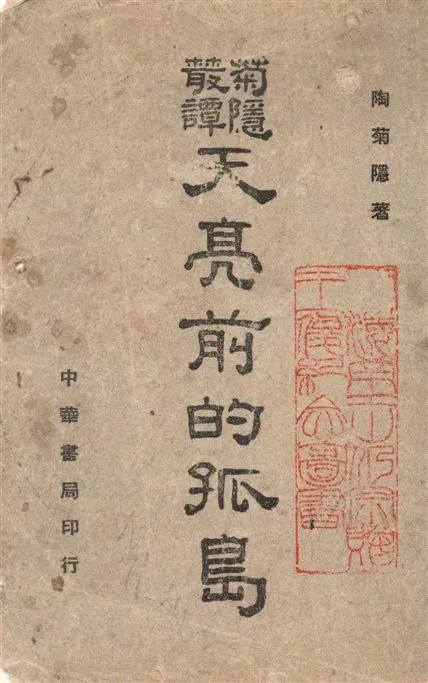 陶菊隱著
菊隱
叢譚
天亮前的孤島
中華書局印行